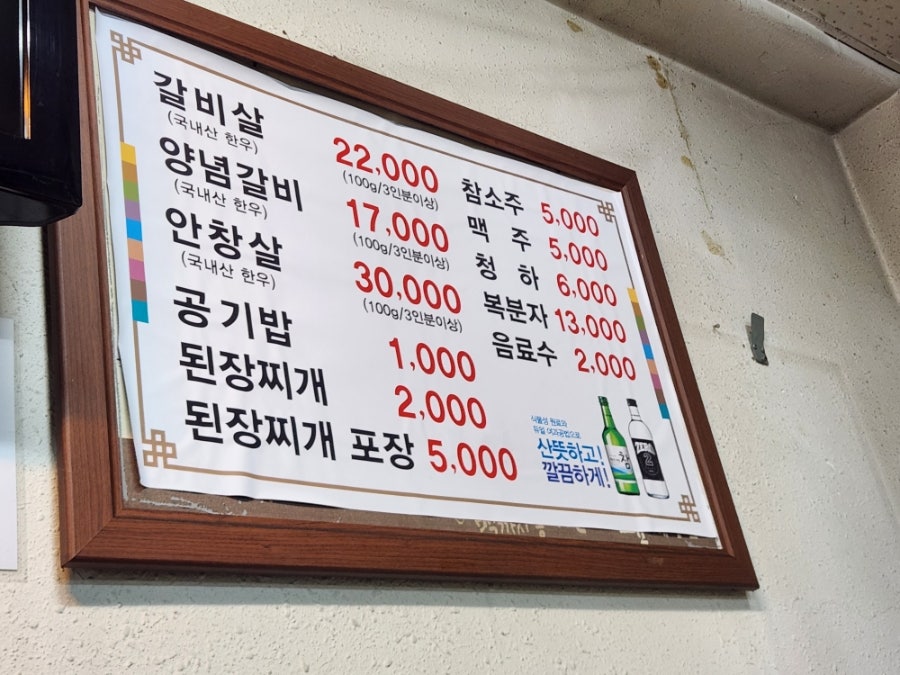 갈비살 22,000
(국내산 한우) (100g/3인분이상)
양념갈비 17,000
(국내산 한우) (100g/3인분이상)
안창살 30,000
(국내산 한우) (100g/3인분이상)
공기밥 1,000
된장찌개 2,000
된장찌개 포장 5,000
참소주 5,000
맥 주 5,000
청 하 6,000
복분자 13,000
음료수 2,000
식물성 원료와
듀얼 여과공법으로
산뜻하고!
깔끔하게!
참
ZERO
2